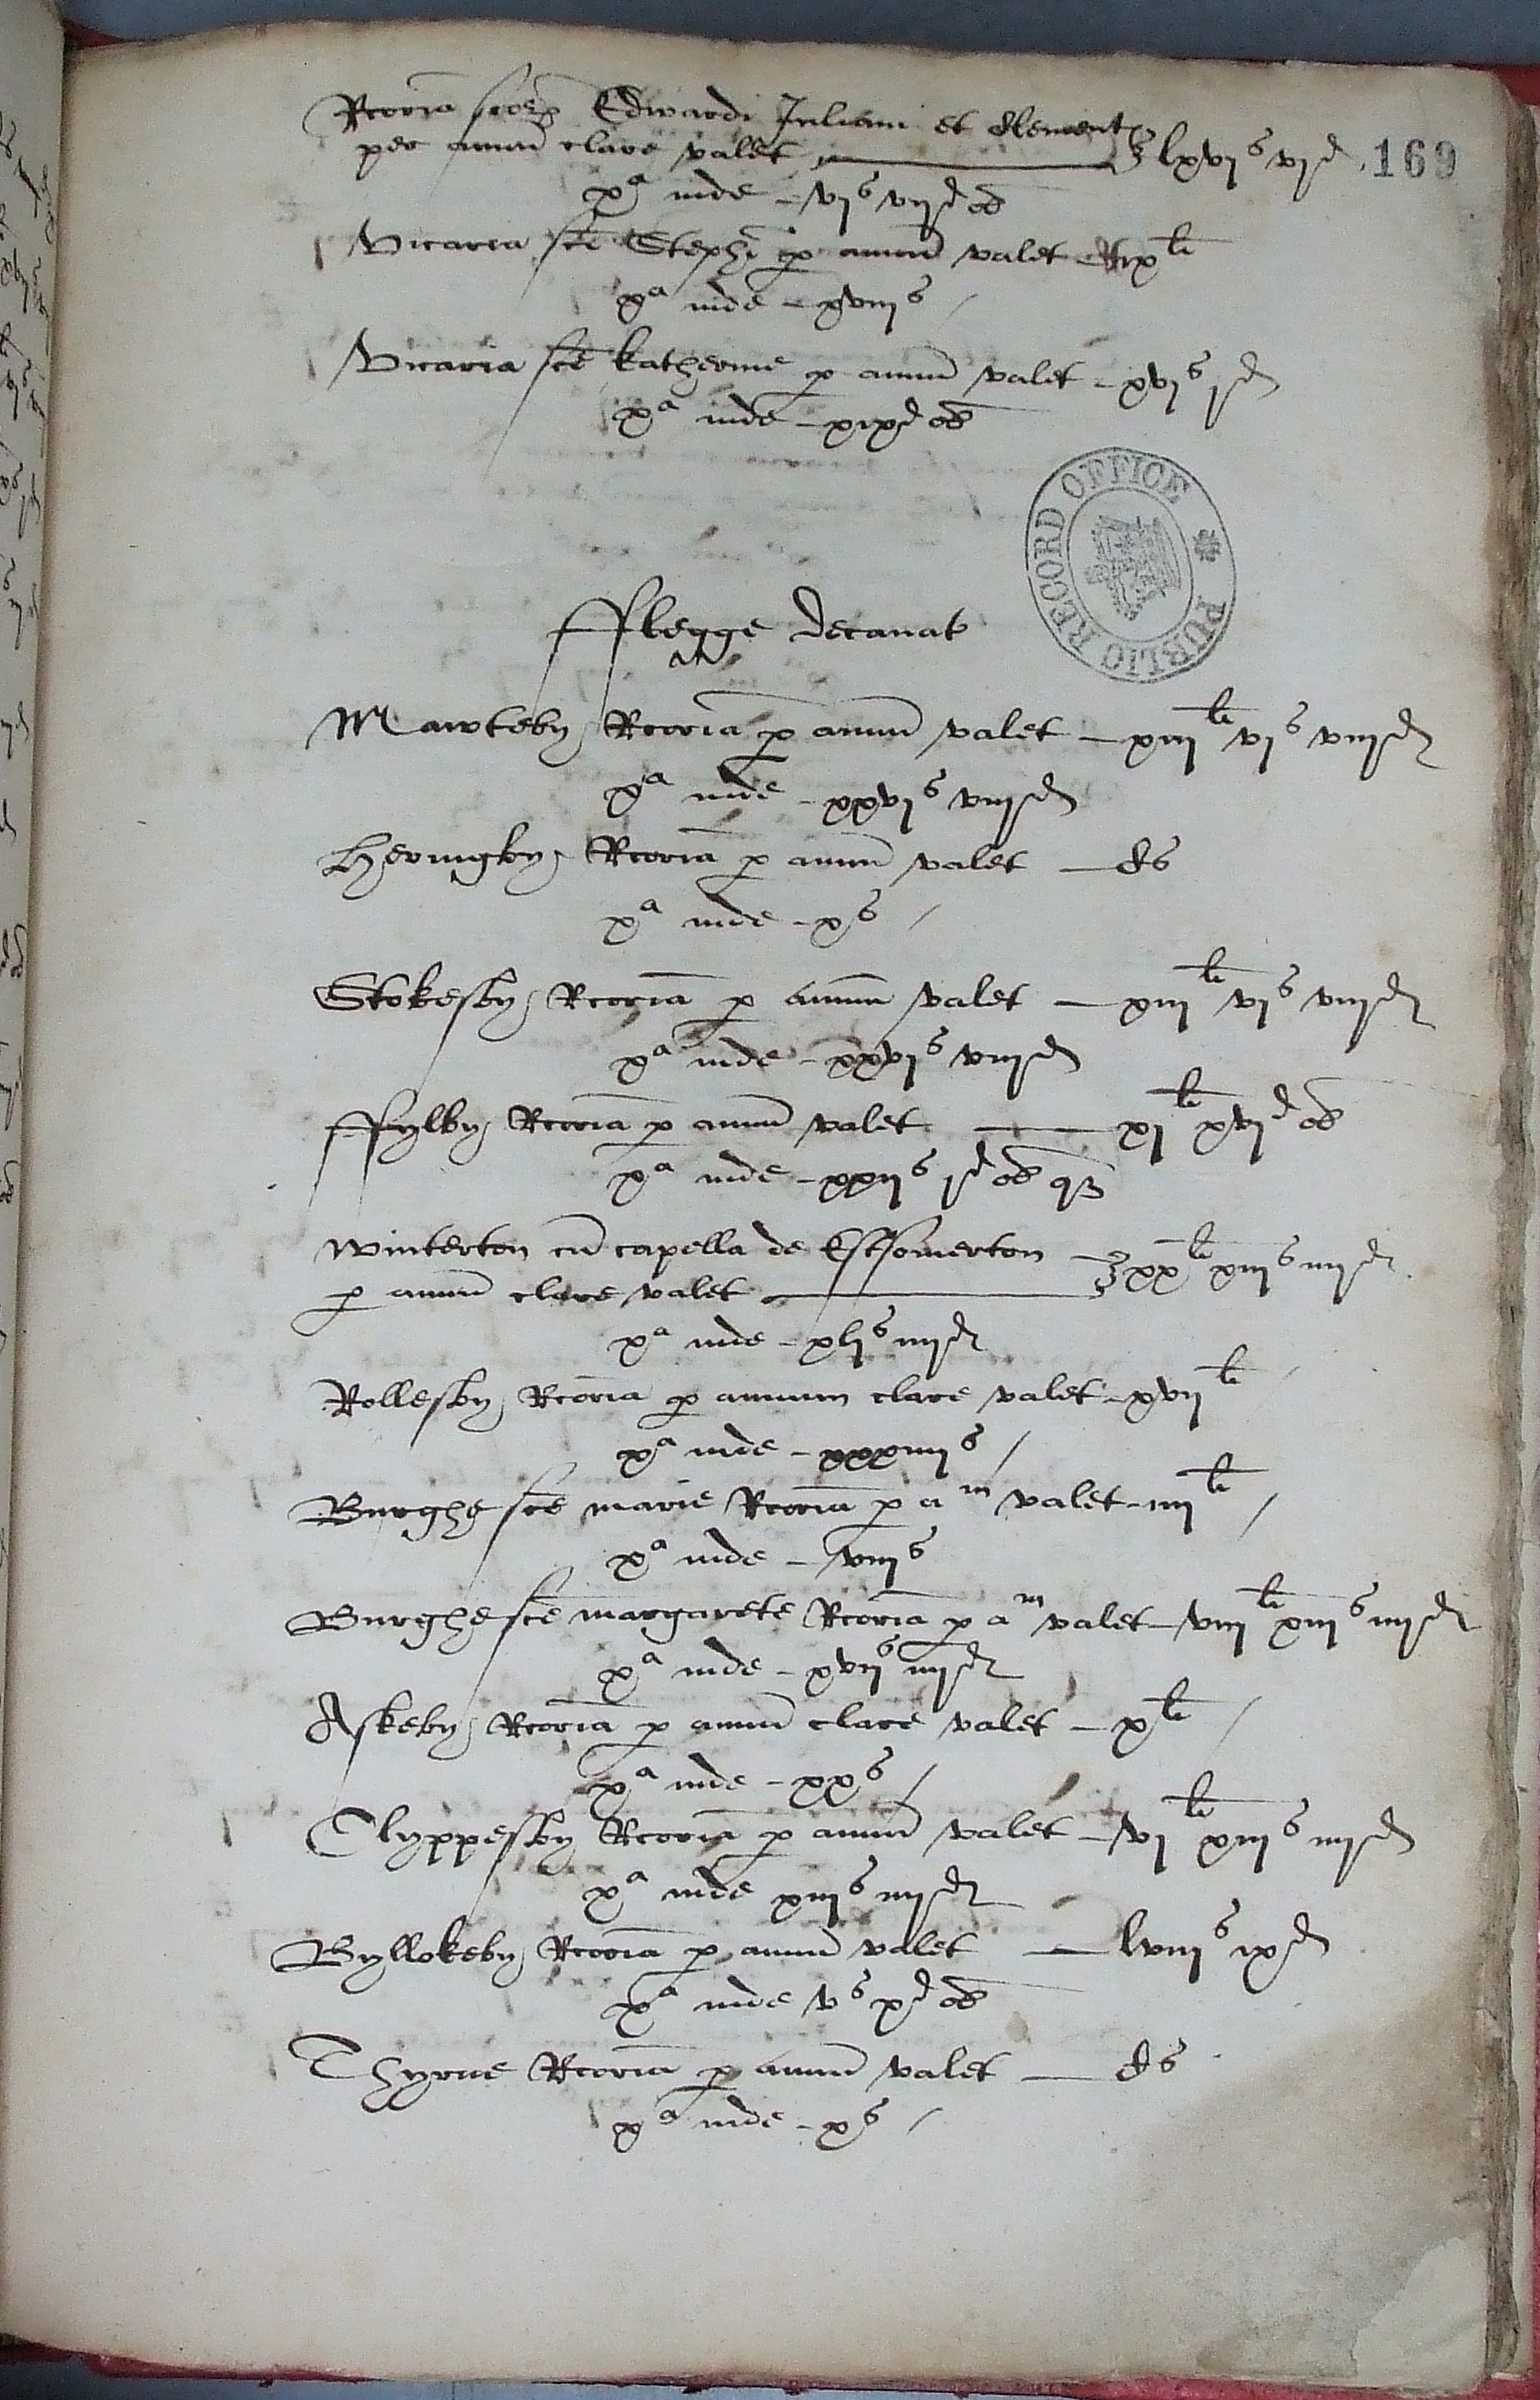 Rcoria scorȝ Edwardi Juliani et Clement
per annu clare valet lxvjs vjd 169
xa inde - vjs vijd ob
Vicaria sce Stephi p annu valet - ixli
xa inde - xviijs
Vicaria sce Katherine p annu valet - xvjs jd
xa inde - xixd ob
PUBLIC RECORD OFFICE
Fflegge decanat
Mawteby Rcoria p annu valet - xiijli vjs viijd
xa inde - xxvjs viijd
Heringby Rcoria p annu valet - Cs
xa inde - xs
Stokesby Rcoria p annu valet - xiijli vjs viijd
xa inde - xxvjs viijd
Ffylby Rcoria p annu valet - xjli xvjd ob
xa inde - xxijs jd ob qȝ
Winterton cu capella de Estsomerton
p annu clare valet xxli xiijs iiijd
xa inde - xljs iiijd
Rollesby Rcoria p annum clare valet - xvijli
xa inde - xxxiiijs
Burghe sce marie Rcoria p am valet - iiijli
xa inde - viijs
Burghe sce margarete Rcoria p am valet - viijli xiijs iiijd
xa inde - xvijs iiijd
Askeby Rcoria p annu clare valet - xli
xa inde - xxs
Clyppesby Rcoria p annu valet - vjli xiijs iiijd
xa inde xiijs iiijd
Byllokeby Rcoria p annu valet - lviijs ixd
xa inde vs xd ob
Thyrne Rcoria p annu valet - Cs
xa inde - xs